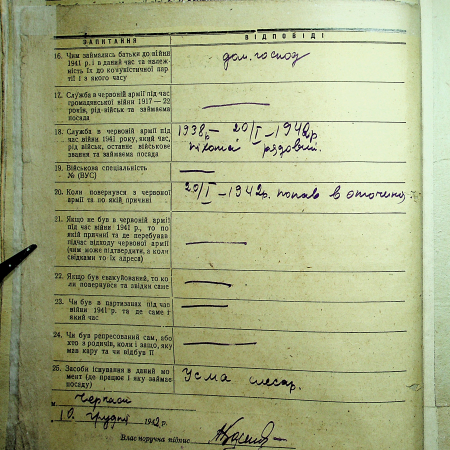 ЗАПИТАННЯ
ВІДПОВІДІ
16. Чим займались батьки до війни
1941 р. і в даний час та належ-
ність їх до комуністичної пар-
тії і з якого часу
дом. господ
17. Служба в червоній армії під час
громадянської війни 1917 — 22
років, рід військ та займаєма
посада
—
18. Служба в червоній армії під
час війни 1941 року, який час,
рід військ, останнє військове
звання та займаєма посада
1938р – 20/I – 1942р
піхота рядовий.
19. Військова спеціальність
№ (ВУС)
—
20. Коли повернувся з червоної
армії та по якій причині
20/I – 1942р. попав в оточення
21. Якщо не був в червоній армії
під час війни 1941 р., то по
якій причині та де перебував
підчас відходу червоної армії
(чим може підтвердити, а коли
свідками то їх адреса)
—
22. Якщо був евакуйований, то ко-
ли повернувся та звідки саме
—
23. Чи був в партизанах під час
війни 1941 р. та де саме і
який час
—
24. Чи був репресований сам, або
хто з родичів, коли і защо, яку
мав кару та чи відбув її
—
25. Засоби існування в даний мо-
мент (де працює і яку займає
посаду)
слесар.
м. Черкаси
10. грудня 1942 р.
Власноручна підпис